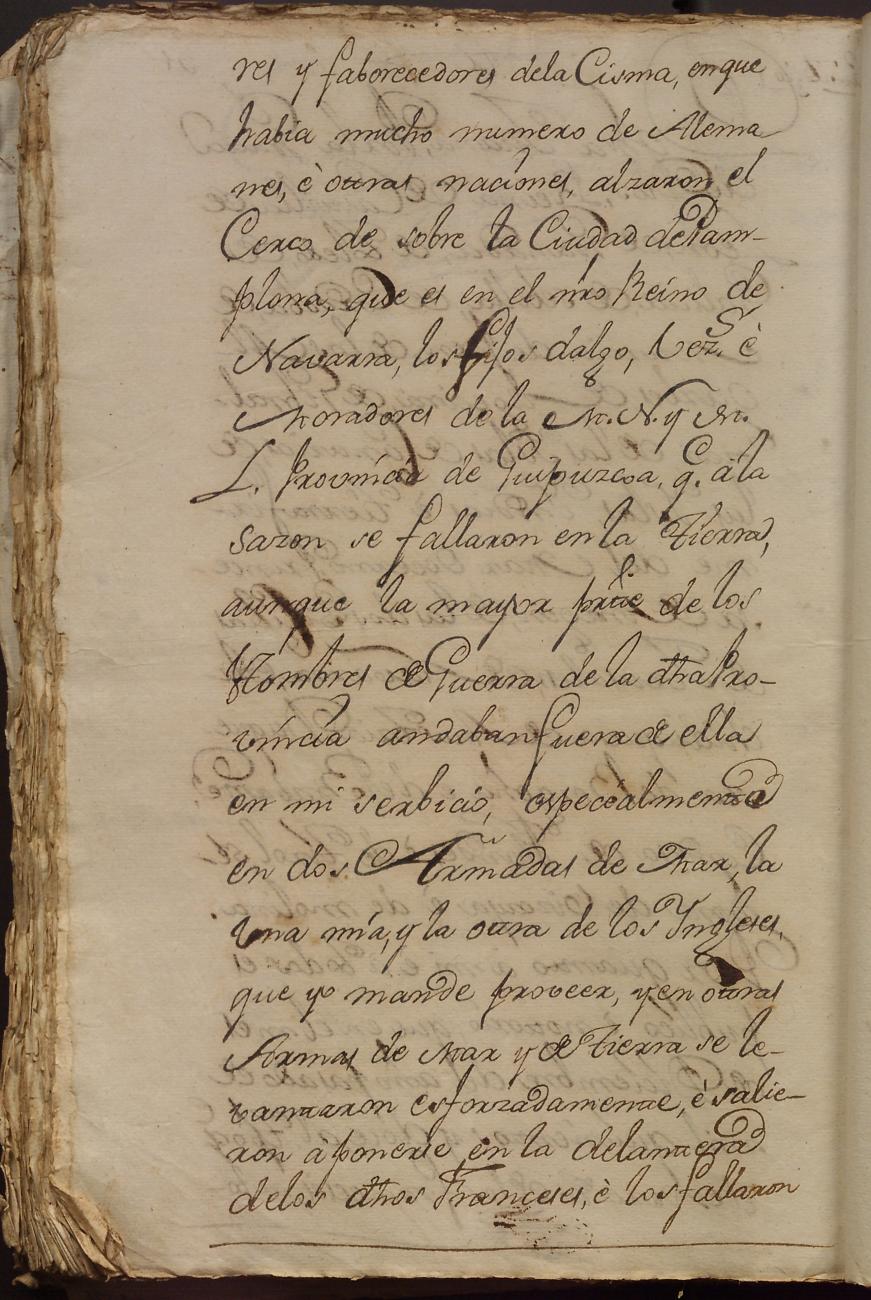 res y faborecedores dela Cisma, enque
habia mucho numero de Alema
nes, è otras naciones, alzaron el
Cerco de sobre la Ciudad dePam-
plona, que es en el nro Reino de
Navarra, los fijos dalgo, Vezs. è
Moradores de la M. N. y M.
L. Provincia de Guipuzcoa, q. à la
sazon se fallaron en la Tierra,
aunque la mayor prte de los
Hombres de Guerra de la dha Pro-
vincia andaban fuera de ella
en mi serbicio, especialmente
en dos Armadas de Mar, la
Una mia, y la otra de los Yngleses,
que yo mande proveer, y en otras
Armas de Mar y de Tierra se le-
vantaron esforzadamente, è salie-
ron à ponerse en la delantera
delos dhos Franceses, è los fallaron